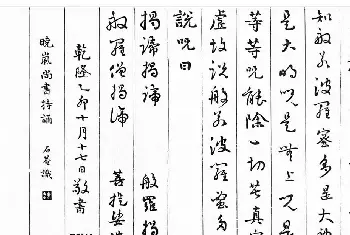 知般若波羅蜜多是大神
是大明咒是無上咒是
等等咒能除一切苦真實
虛故說般若波羅蜜多
說咒曰
揭諦揭諦 般羅揭
般羅僧揭諦 菩提娑
乾隆乙卯十月十七日敬書
曉嵐尚書持誦 石菴識